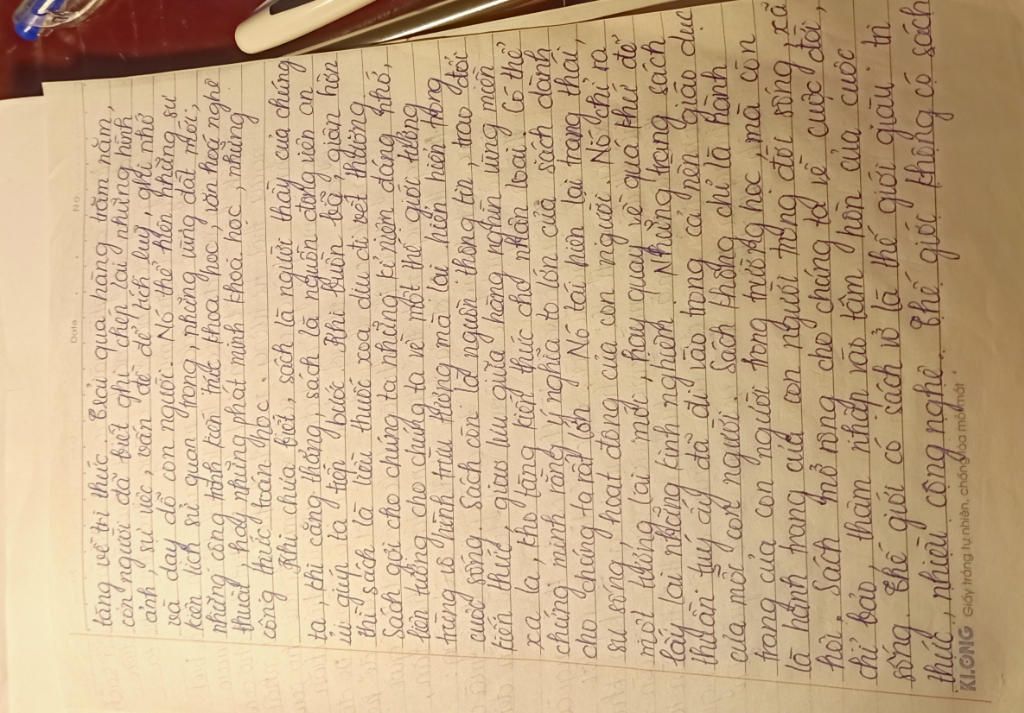 No
Date
tảng về tri thức. Trải qua hàng trăm năm,
con người đã biết ghi chép lại những hình
ảnh sự việc, vấn đề để tích luỹ, ghi nhớ
và dạy dỗ con người. Nó thể hiện bằng sự
kiện lịch sử quan trọng những vùng đất mới,
những công trình kiến trúc khoa học, văn hoá nghệ
thuật, hay những phát minh khoa học, những
công thức toán học.
Khi chưa biết, sách là người thầy của chúng
ta, khi căng thẳng, sách là nguồn động viên an
ủi giúp ta tiếp bước. Khi buồn bã giận hờn
thì sách là liều thuốc xoa dịu đi vết thương
Sách gợi cho chúng ta những kỉ niệm đáng nhớ,
liên tưởng cho chúng ta về một thế giới tưởng
chừng vô hình trừu tượng mà lại hiển hiện trong
cuộc sống. Sách còn là nguồn thông tin, trao đổi
kiến thức giao lưu giữa hàng nghìn vùng miền
xa lạ, kho tàng kiến thức cho nhân loại. Có thể
chứng minh rằng ý nghĩa to lớn của sách dành
cho chúng ta rất lớn. Nó tái hiện lại trạng thái,
sự sống, hoạt động của con người. Nó chỉ ra
một tương lai mới, hay quay về quá khứ để
lấy lại những kinh nghiệm. Những trang sách
thuần tuý ấy đã đi vào trong cả nền giáo dục
của mỗi con người. Sách không chỉ là hành
trang của con người trong trường học mà còn
là hành trang của con người trong đời sống xã
hội. Sách mở rộng cho chúng ta về cuộc đời,
chỉ bảo, thấm nhuần vào tâm hồn của cuộc
sống. Thế giới có sách sẽ là thế giới giàu tri
thức, nhiều công nghệ. Thế giới không có sách
KLONG Giấy trắng tự nhiên, chống lóa mỏi mắt